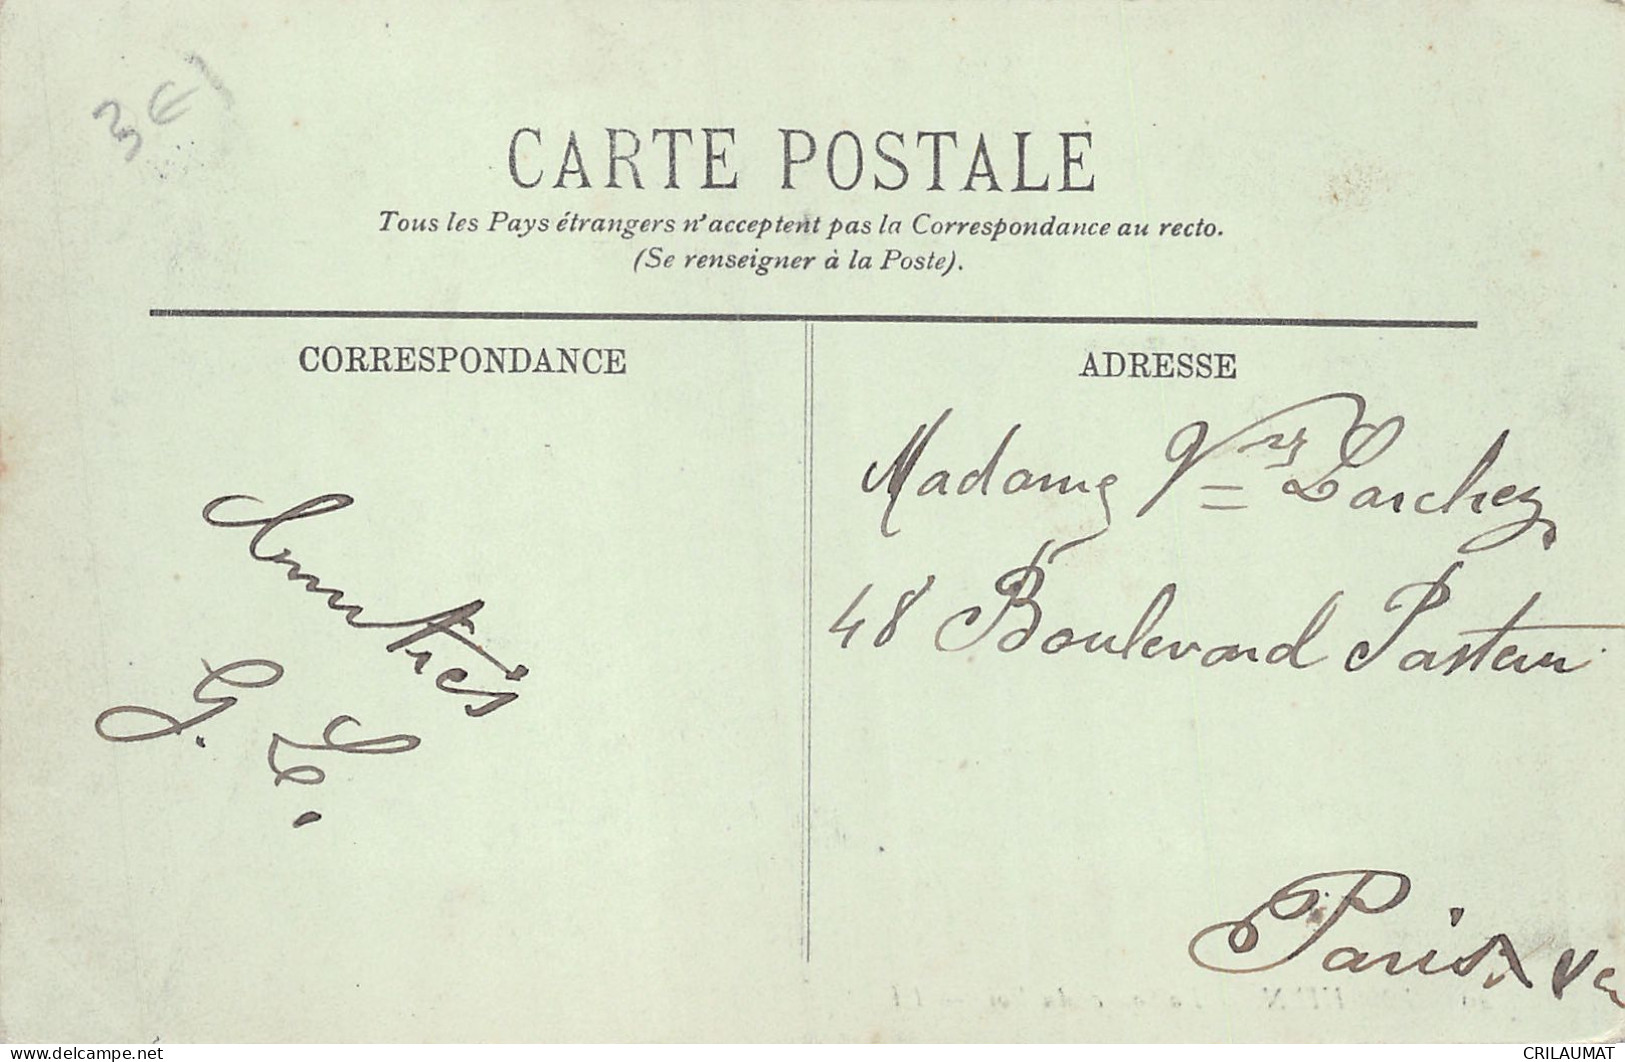 3 €
CARTE POSTALE
Tous les Pays étrangers n'acceptent pas la Correspondance au recto.
(Se renseigner à la Poste).
CORRESPONDANCE
G. L.
ADRESSE
Madame Vve Larchez
48 Boulevard Pasteur
Paris. XVe
CRILAUMAT